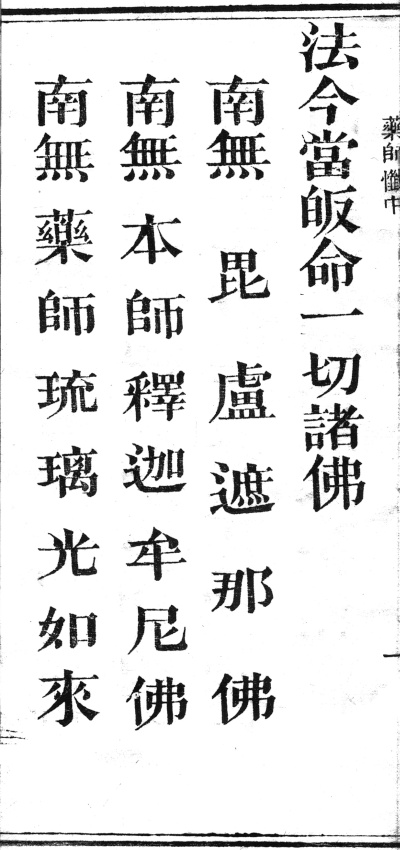 藥師懺中
法今當皈命一切諸佛
南無毘盧遮那佛
南無本師釋迦牟尼佛
南無藥師琉璃光如來